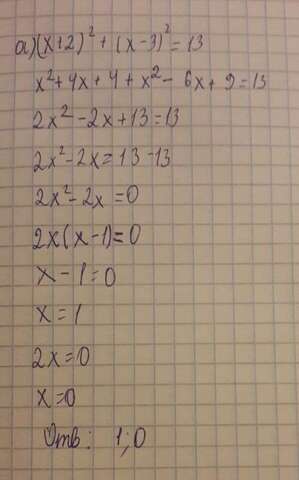 а) (x+2)² + (x-3)² = 13
x² + 4x + 4 + x² - 6x + 9 = 13
2x² - 2x + 13 = 13
2x² - 2x = 13 - 13
2x² - 2x = 0
2x(x-1) = 0
x - 1 = 0
x = 1
2x = 0
x = 0
Отв: 1; 0